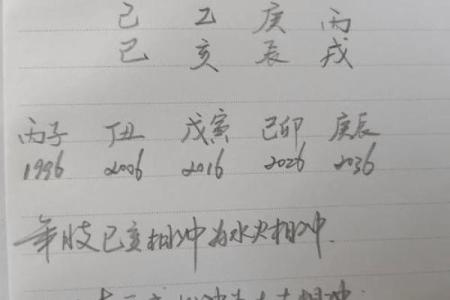 己 乙 庚 丙
巳 亥 辰 戌
丙子 丁丑 戊寅 己卯 庚辰
1996 2006 2016 2026 2036
年支巳亥相冲为水火相冲.